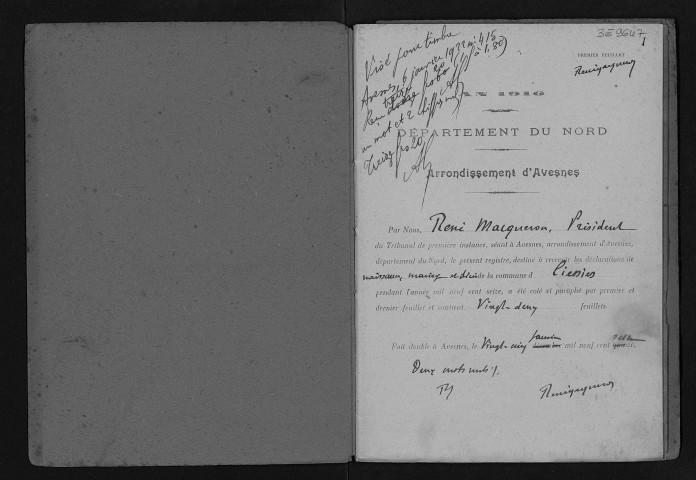 3E 9647
1
PREMIER FEUILLET
Visé pour timbre
Avesnes 6 janvier 1922 n° 415
un mot et 2 chiffres
Treize frs 20
AN 1916
DÉPARTEMENT DU NORD
Arrondissement d'Avesnes
Par Nous, René Macqueron, Président
du Tribunal de première instance, séant à Avesnes, arrondissement d'Avesnes,
département du Nord, le présent registre, destiné à recevoir les déclarations de
naissances, mariages et décès de la commune d Liessies
pendant l'année mil neuf cent seize, a été coté et paraphé par premier et
dernier feuillet et contient Vingt-deux feuillets
Fait double à Avesnes, le Vingt-cinq janvier mil neuf cent seize
Deux mots nuls ./.